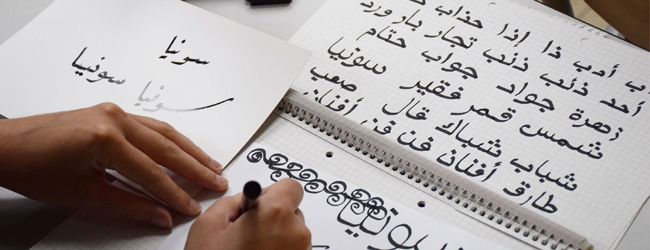 أدب ذا إذا
أحد ذئب ذنب تجار بار ورد
زهرة جواد جواب ختام
شمس قمر فقير سونيا
شباب شباك قال صعب
طارق أفنان فن فن أفنان
سونيا
سونيا سونيا
سونيا
سونيا